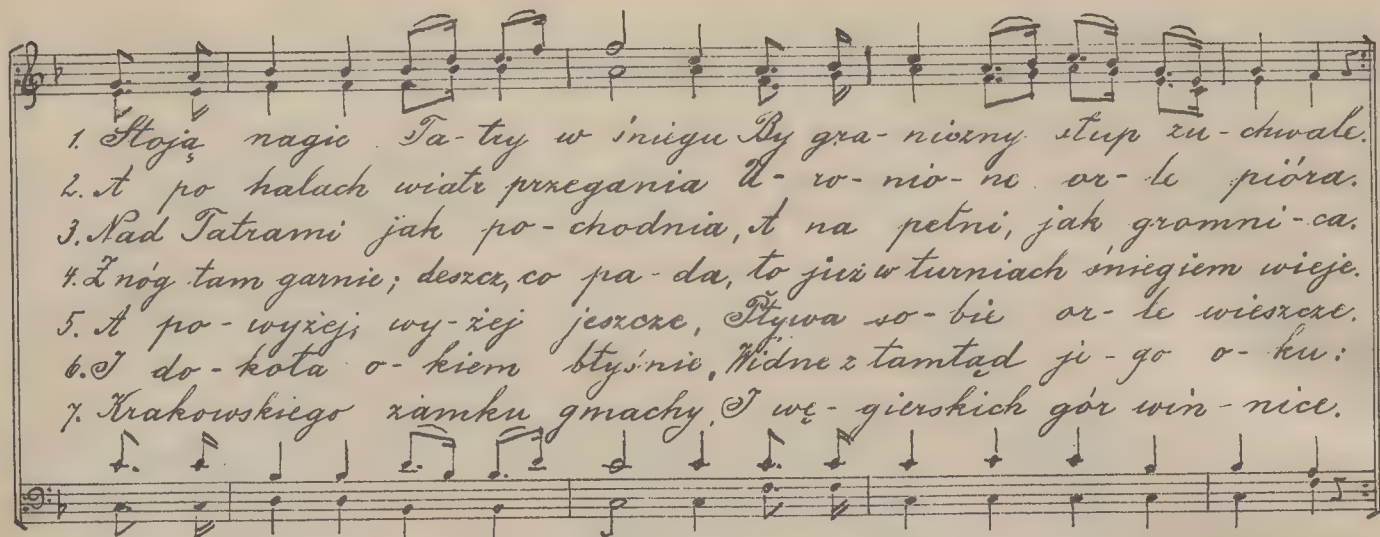 1. Stoją nagie Ta-try w śniegu By gra-niczny słup zu-chwale.
2. A po halach wiatr przegania U-ro-nio-ne or-le pióra.
3. Nad Tatrami jak po-chodnia, A na pełni, jak gromni-ca.
4. Z nóg tam garnie; deszcz, co pa-da, to już w turniach śniegiem wieje.
5. A po-wyżej, wy-żej jeszcze, Pływa so-bie or-le wieszcze.
6. I do-koła o-kiem błyśnie, Widne z tamtąd je-go o-ku:
7. Krakowskiego zamku gmachy, I wę-gierskich gór win-nice.